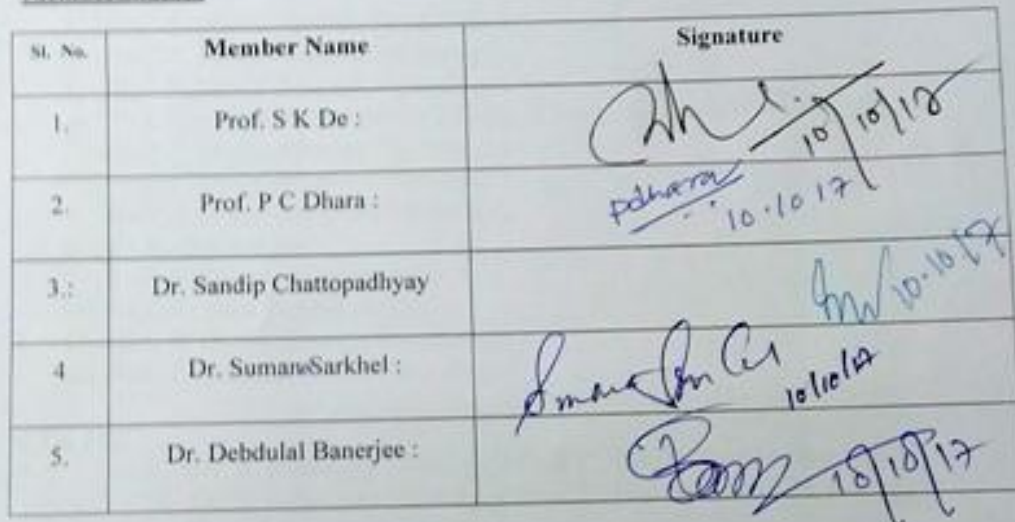 Sl. No. Member Name Signature
1. Prof. S K De : 10/10/17
2. Prof. P C Dhara : pdhara 10.10 17
3.: Dr. Sandip Chattopadhyay 10.10/17
4 Dr. Suman Sarkhel : 10/10/17
5. Dr. Debdulal Banerjee : 10/10/17